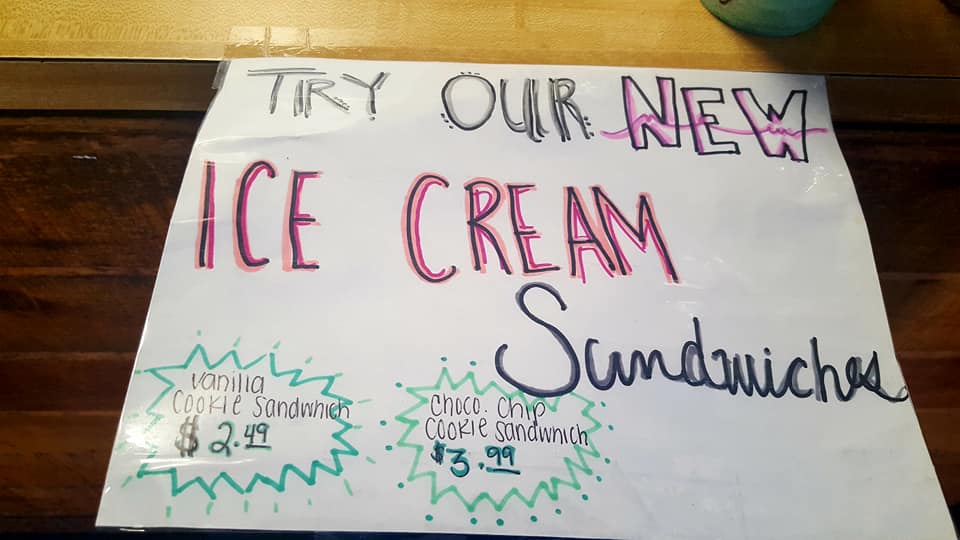 TRY OUR NEW
ICE CREAM
Sandwiches
vanilla
COOKIE Sandwhich
$2.49
CHOCO. CHIP
COOKIE Sandwnich
$3.99